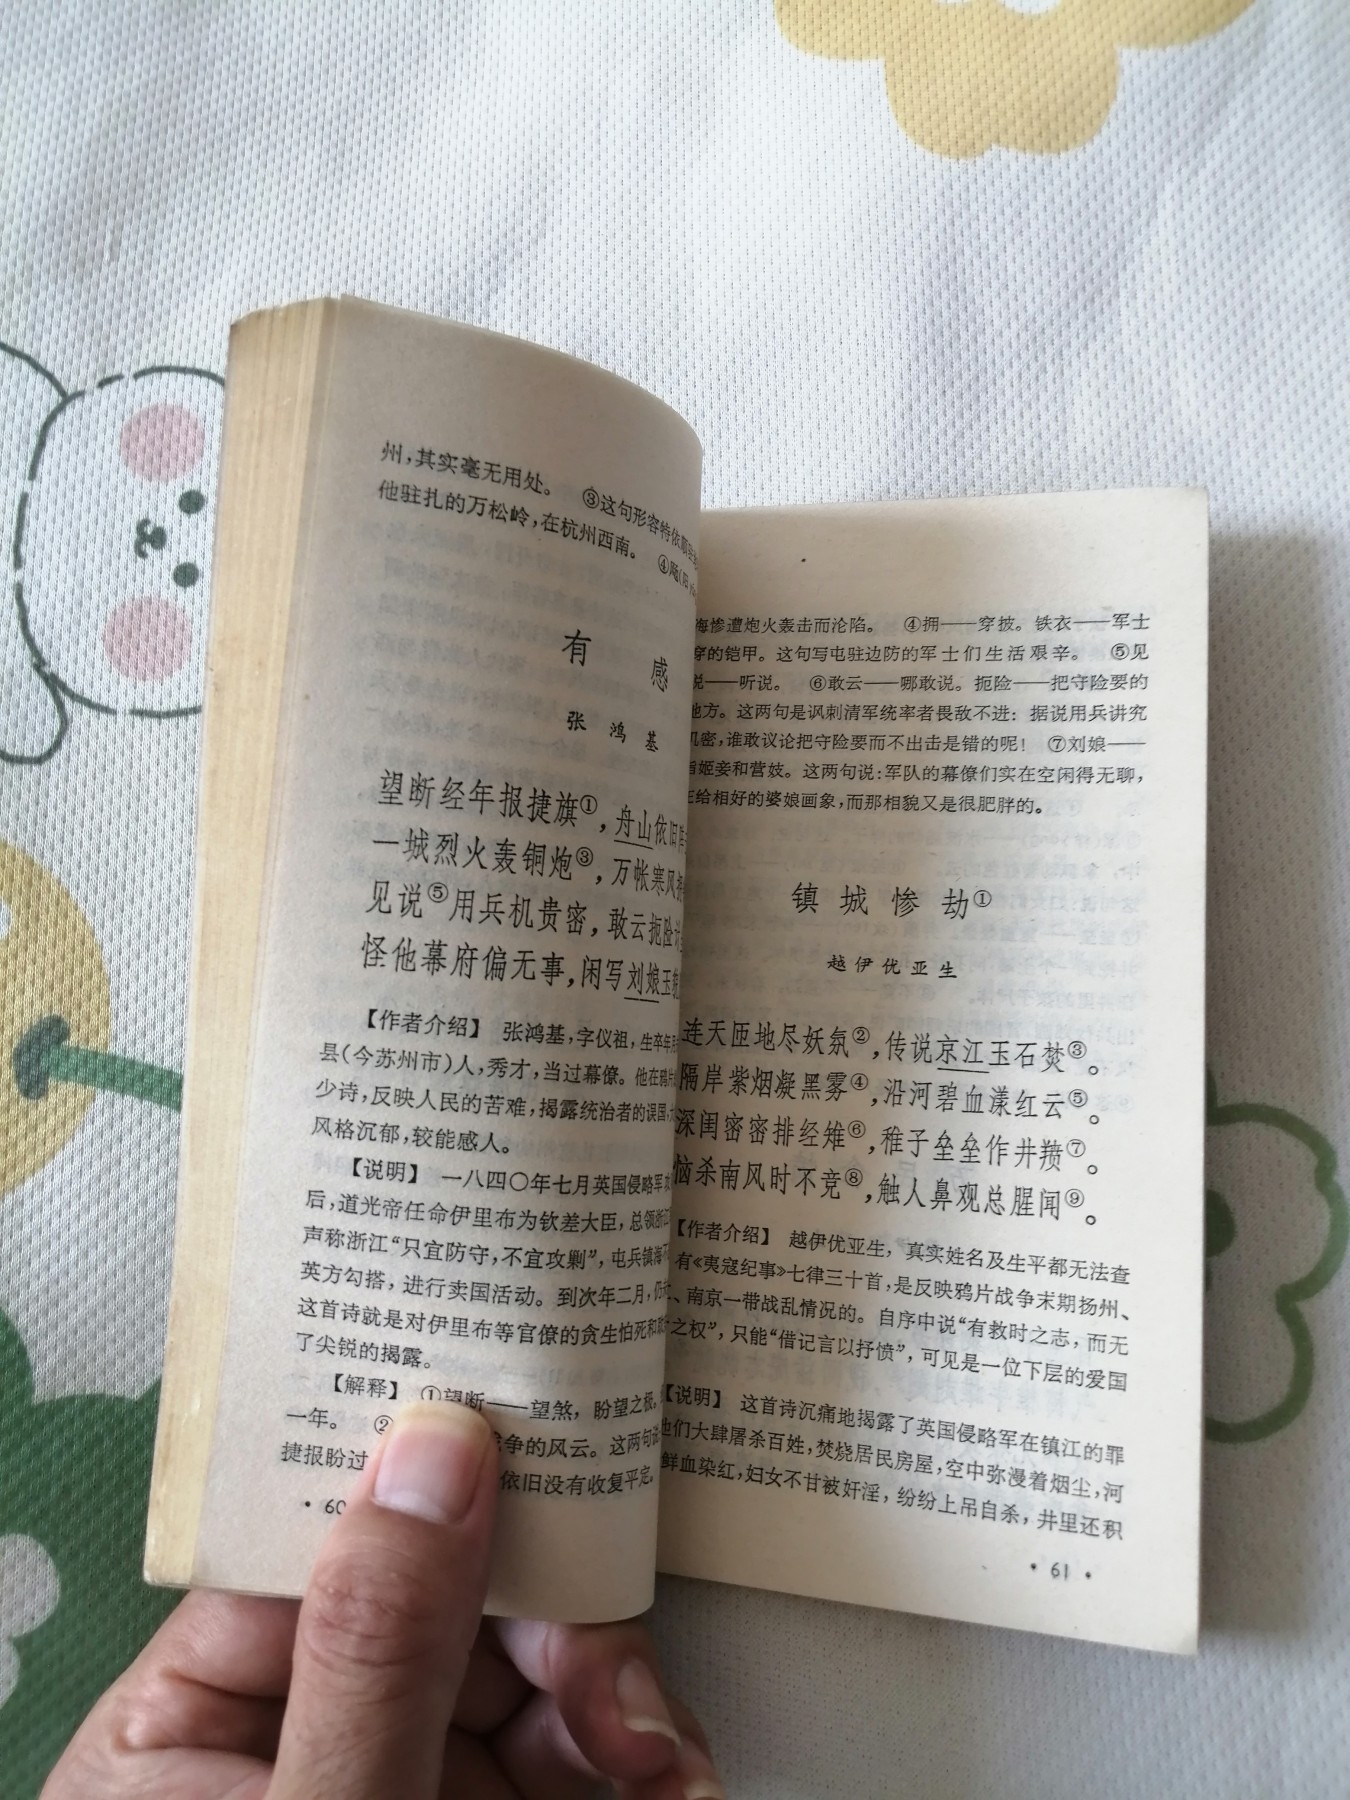 州，其实毫无用处。　③这句形容特依顺
他驻扎的万松岭，在杭州西南。　④飏（阳
有　感
张　鸿　基
望断经年报捷旗①，舟山依旧阵
一城烈火轰铜炮③，万帐寒风
见说⑤用兵机贵密，敢云扼险计
怪他幕府偏无事，闲写刘娘玉
【作者介绍】　张鸿基，字仪祖，生卒年
县（今苏州市）人，秀才，当过幕僚。他在鸦片
少诗，反映人民的苦难，揭露统治者的误国，
风格沉郁，较能感人。
【说明】　一八四〇年七月英国侵略军
后，道光帝任命伊里布为钦差大臣，总领浙江
声称浙江“只宜防守，不宜攻剿”，屯兵镇海不
英方勾搭，进行卖国活动。到次年二月，仍
这首诗就是对伊里布等官僚的贪生怕死和
了尖锐的揭露。
【解释】　①望断——望煞，盼望之极。
一年。　②　争的风云。这两句说
捷报盼过　依旧没有收复平定。
· 60
海惨遭炮火轰击而沦陷。　④拥——穿披。铁衣——军士
穿的铠甲。这句写屯驻边防的军士们生活艰辛。　⑤见
说——听说。　⑥敢云——哪敢说。扼险——把守险要的
地方。这两句是讽刺清军统率者畏敌不进：据说用兵讲究
机密，谁敢议论把守险要而不出击是错的呢！　⑦刘娘——
指姬妾和营妓。这两句说：军队的幕僚们实在空闲得无聊，
正给相好的婆娘画象，而那相貌又是很肥胖的。
镇城惨劫①
越伊优亚生
连天匝地尽妖氛②，传说京江玉石焚③。
隔岸紫烟凝黑雾④，沿河碧血漾红云⑤。
深闺密密排经雉⑥，稚子垒垒作井羵⑦。
恼杀南风时不竞⑧，触人鼻观总腥闻⑨。
【作者介绍】　越伊优亚生，真实姓名及生平都无法查
有《夷寇纪事》七律三十首，是反映鸦片战争末期扬州、
、南京一带战乱情况的。自序中说“有救时之志，而无
之权”，只能“借记言以抒愤”，可见是一位下层的爱国
【说明】　这首诗沉痛地揭露了英国侵略军在镇江的罪
他们大肆屠杀百姓，焚烧居民房屋，空中弥漫着烟尘，河
鲜血染红，妇女不甘被奸淫，纷纷上吊自杀，井里还积
· 61 ·